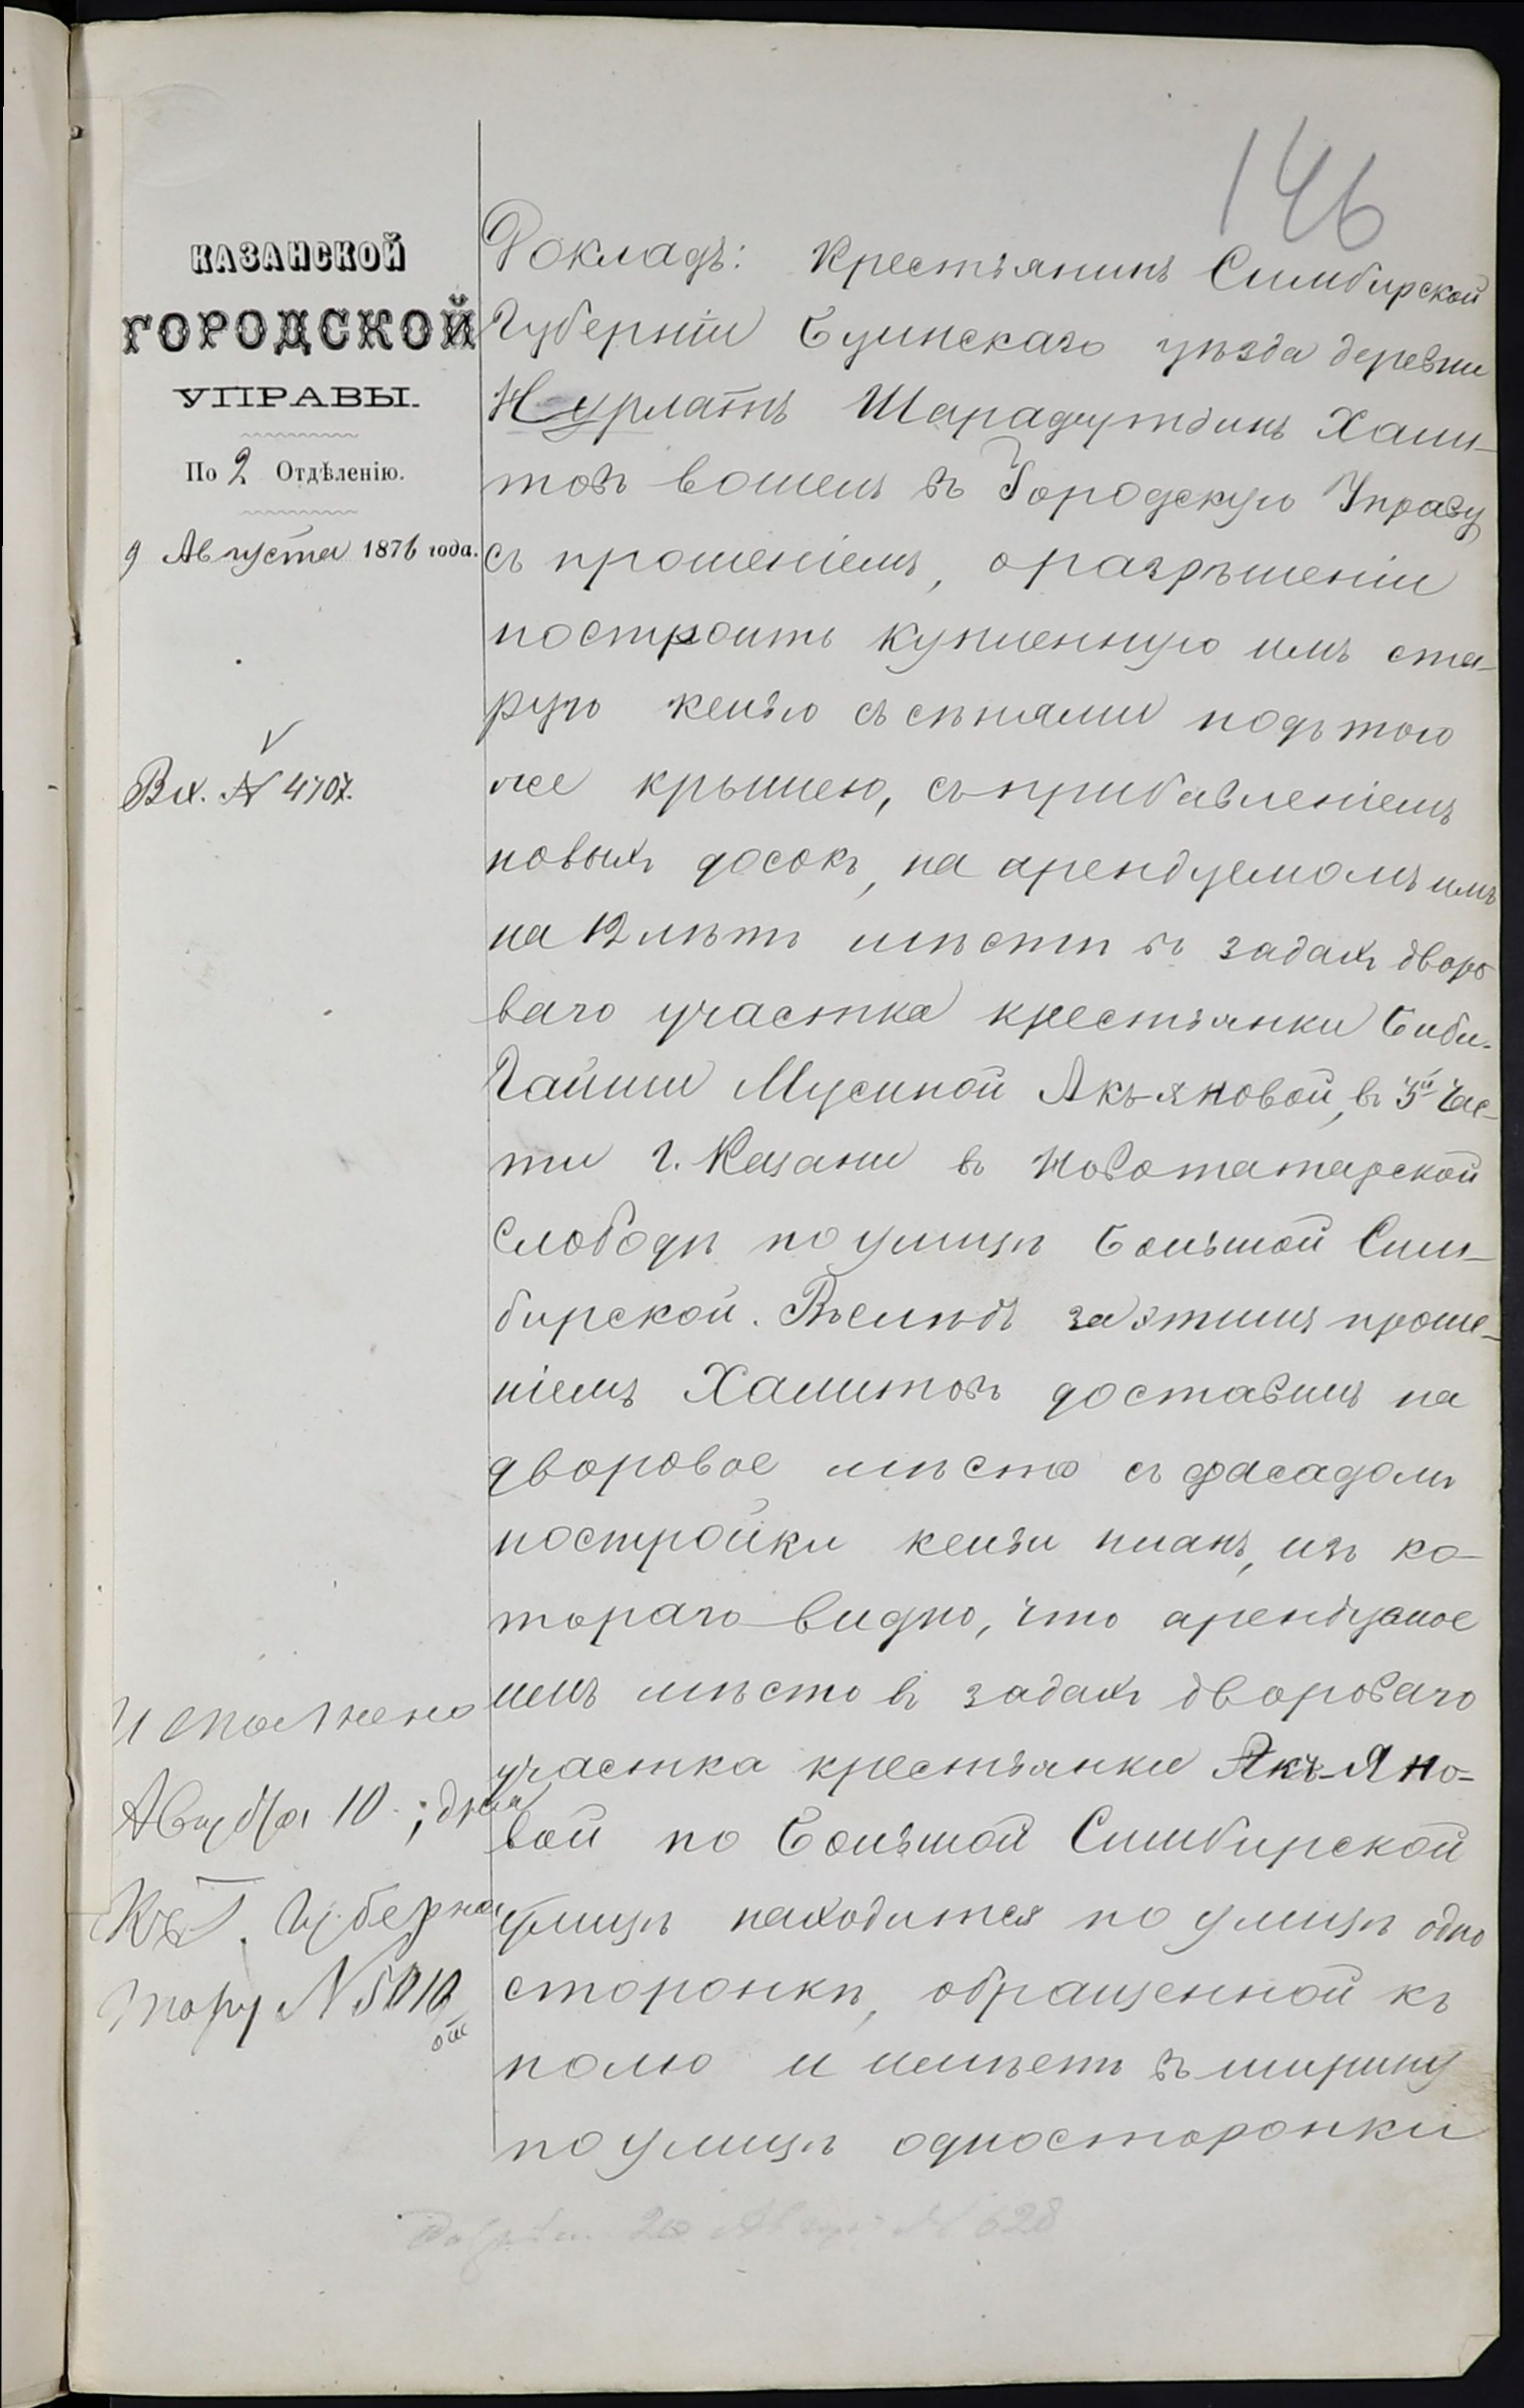 146
КАЗАНСКОЙ
ГОРОДСКОЙ
УПРАВЫ.
По 2 Отдѣленію.
9 Августа 1876 года.
Вх. № 4707.
Исполнено
Августа 10 дня
Къ Г. Губерна
тору № 5010
Докладъ: Крестьянинъ Симбирской
Губерніи Буинскаго уѣзда деревни
Нурлатъ Шарафутдинъ Хами-
товъ вошелъ въ Городскую Управу
съ прошеніемъ, о разрѣшеніи
построить купленную имъ ста-
рую келью съ сѣнями подъ тою
же крышею, съ прибавленіемъ
новыхъ досокъ, на арендуемомъ имъ
на 12 лѣтъ мѣстѣ въ задахъ дворо
ваго участка крестьянки Биби-
Гайши Мусиной Якъ-яновой, въ 5й Час-
ти г. Казани въ Новотатарской
Слободѣ по улицѣ Большой Сим-
бирской. Вслѣдъ за этимъ проше-
ніемъ Хамитовъ доставилъ на
дворовое мѣсто съ фасадомъ
постройки кельи планъ, изъ ко-
тораго видно, что арендуемое
имъ мѣсто въ задахъ двороваго
участка крестьянки Якъ-Яно-
вой по Большой Симбирской
улицѣ находится по улицѣ одно
сторонкѣ, обращенной къ
полю и имѣетъ въ ширину
по улицѣ односторонки